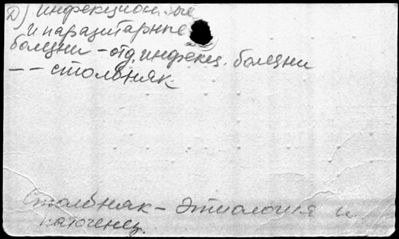 D) инфекционные
и паразитарные
болезни – отд. инфекц. болезни
– – столбняк.
Столбняк – этиология и
патогенез.